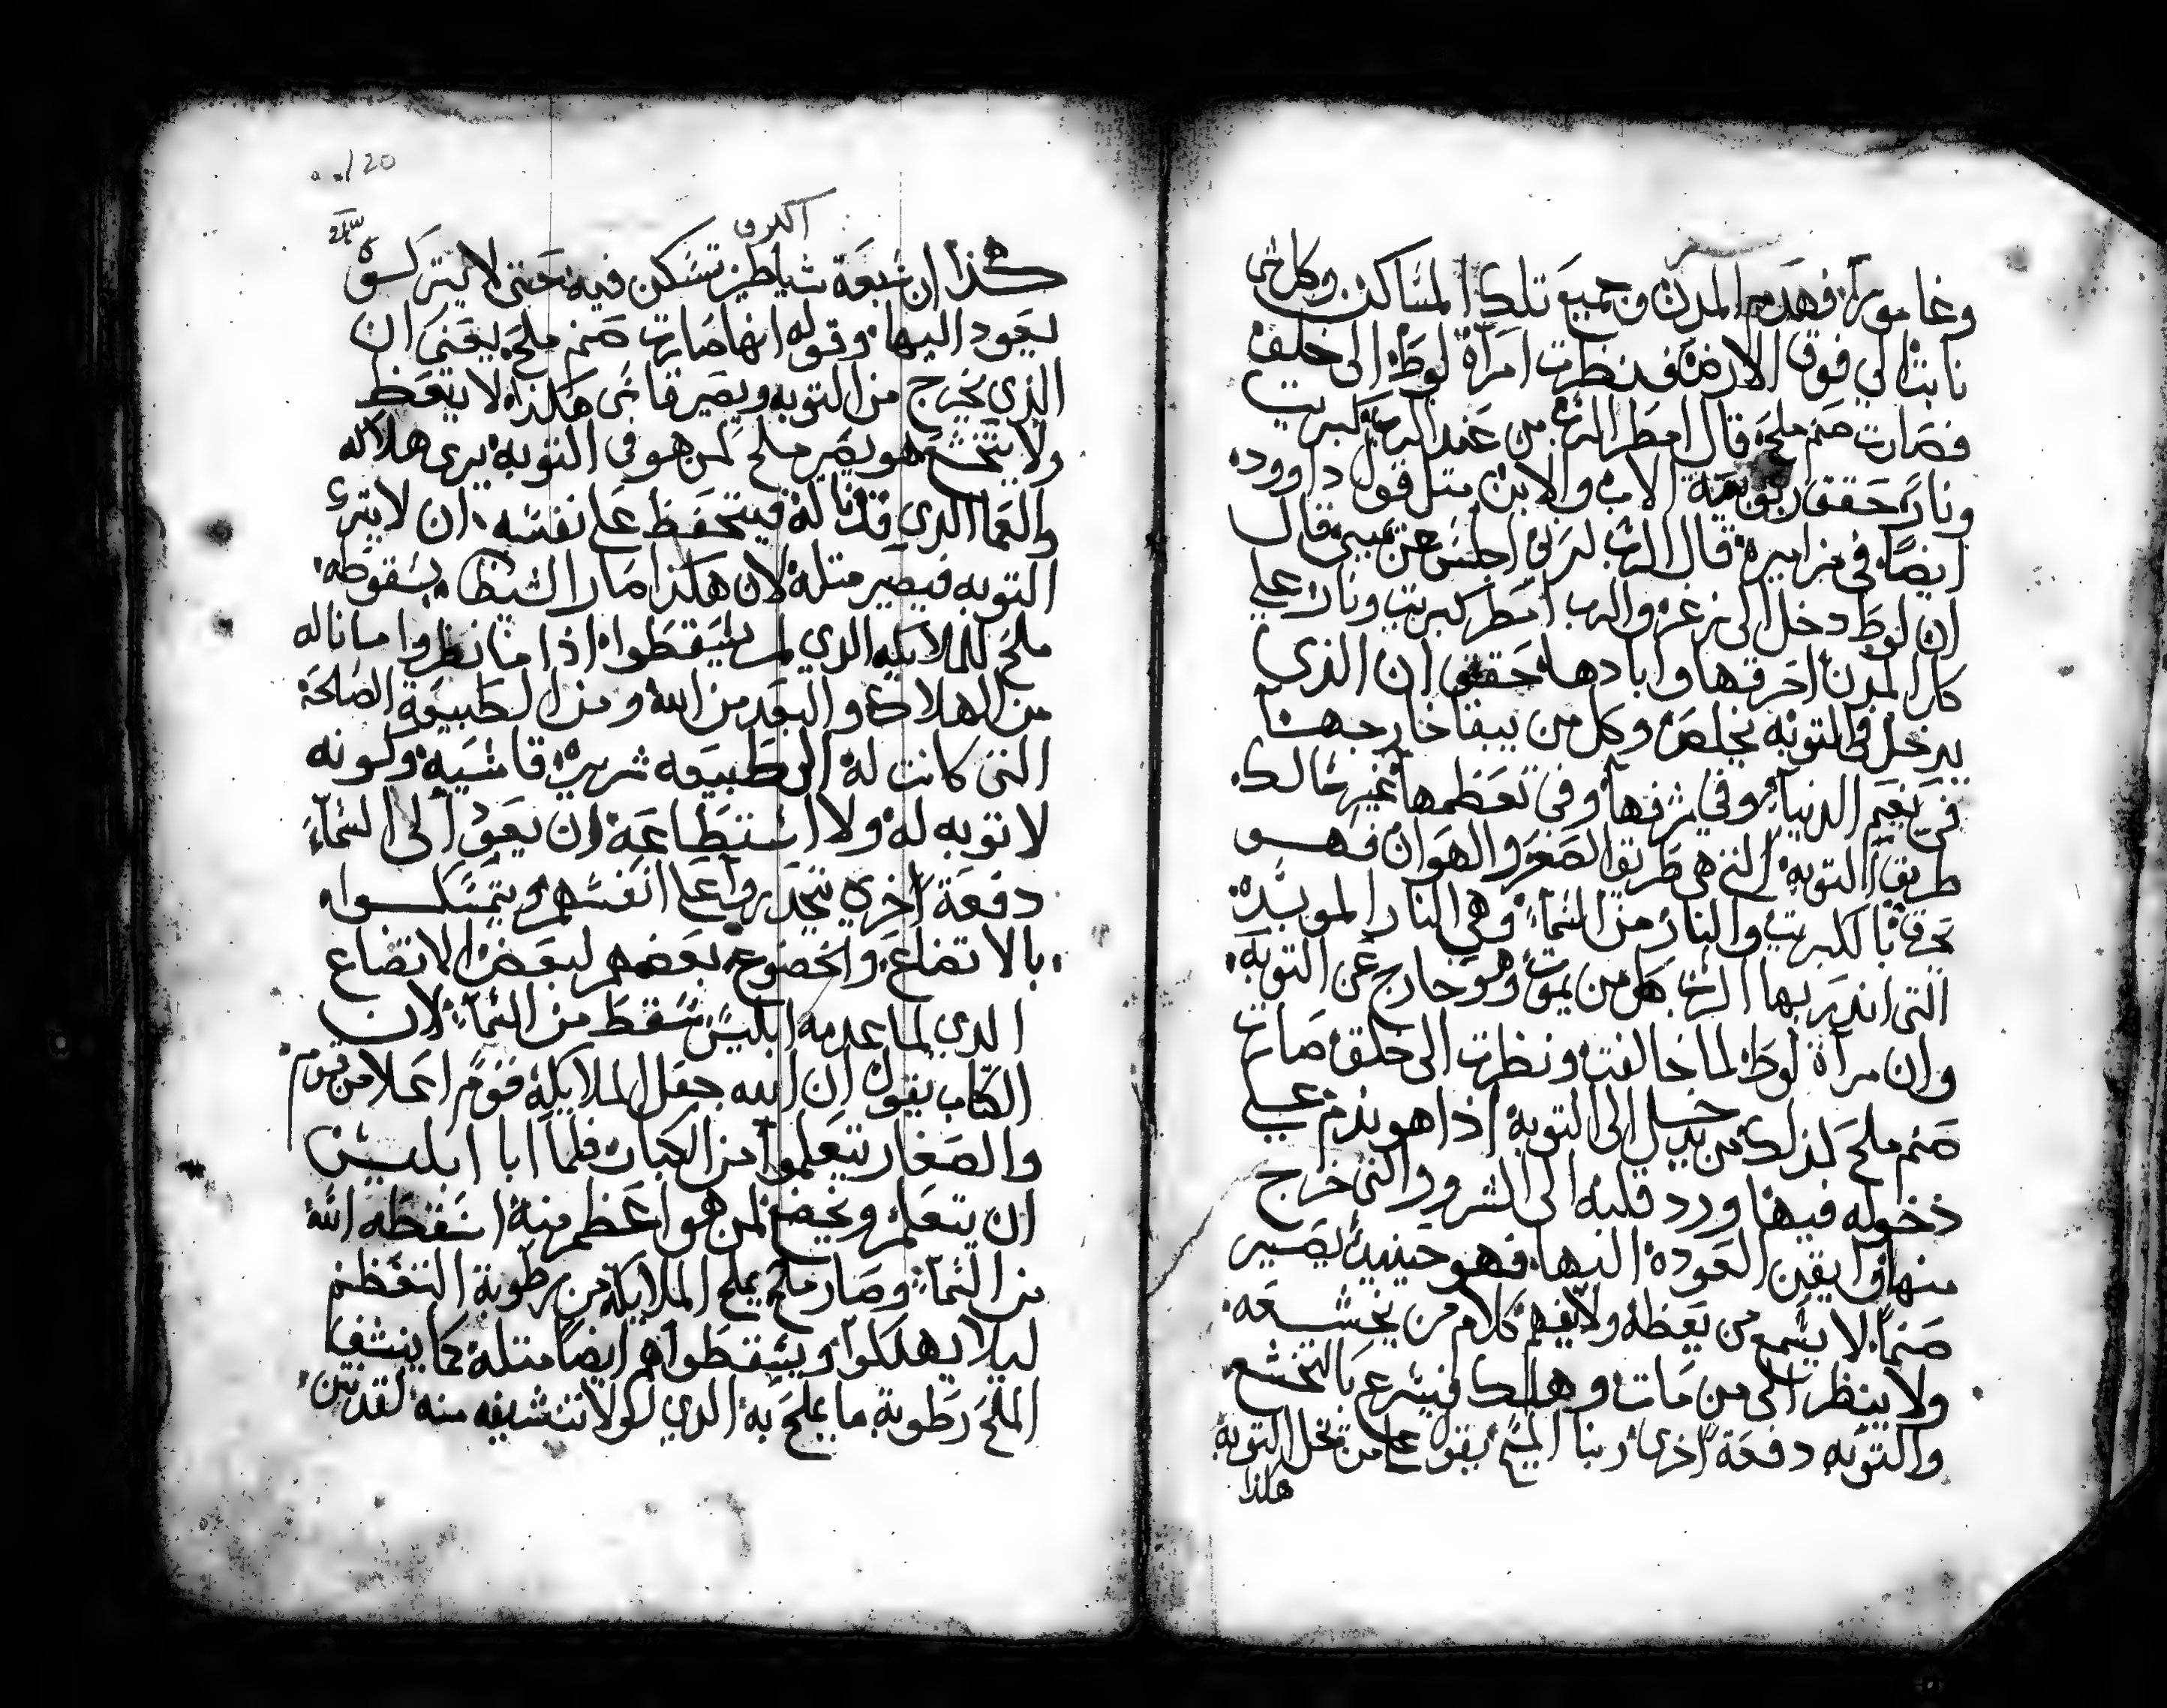 وغامورا فهدم المدن وجميع تلك المساكن وكل شي
نابتا لي فوق الارض فنظرت امراة لوط الى خلف
فصارت صنم ملح قال امطر الرب من عند الرب كبريت
ونار حقق ربوبية الاب والابن متل قول داوود
ايضا في مزاميره قال الرب لربي اجلس عن يميني قال
ان لوط دخل الى زغر والرب امطر كبريت ونار على
كل المدن احرقها وابادها حقق ان الذي
يدخل في التوبه يخلص وكل من يبقا خارجها
في نعيم الدنيا وفي شرفها وفي تعظمها غير سالك
طريق التوبه التي هي طريق الصغر والهوان فهو
يحرق بالكبريت والنار من السما وهي النار الموبده
التي اندر بها الرب كل من يموت وهو خارج عن التوبة
وان مراة لوط لما خالفت ونظرت الى خلف صارت
صنم ملح لذلك من يدخل الى التوبة اذا هو ندم على
دخوله فيها ورد قلبه الى الشرور التي خرج
منها وايقن العودة اليها فهو حينيذ يصير
صنما لا يسمع من يعظه ولا يفهم كلام من يخشعه
ولا ينظر الى من مات وهلك فيسرع بالتخشع
والتوبه دفعة اخرى ربنا المسيح يقول على من يحل التوبة
هكذا
/20
هكذا ان سبعة شياطين تسكن فيه حتى لا يتركوه
يعود اليها وقوله انها صارت صنم ملح يعني ان
الذي يخرج من التوبه ويصير قاسى هكذا لا يتعظ
ولا يتخشع هو يصير ملح لمن هو في التوبه يرى هلاكه
والعما الذي قد ناله فيتحفظ على نفسه ان لا يترك
التوبه فيصير متله لان هكذا صار الشيطان بسقوطه
ملح للملايكه الدي لم يسقطوا اذا ما نظروا ما ناله
من الهلاك والبعد من الله ومن الطبيعة الصالحة
التى كانت له الى طبيعه شريره قاسيه وكونه
لا توبه له ولا استطاعة ان يعود الى السماء
دفعة اخرى يتحدروا على انفسهم ويتمسكوا
بالاتضاع والخضوع بعضهم لبعض الاتضاع
الدي لما عدمه ابليس سقط من السما لان
الكتاب يقول ان الله جعل الملايكة قوم اعلا من قوم
والصغار يتعلموا من الكبار فلما ابا ابليس
ان يتعلم ويخضع لمن هو اعظم منه اسقطه الله
من السما وصار ملح يملح الملايكة من رطوبة التعظم
ليلا يهلكوا ويسقطوا هم ايضا متله كما ينشف
الملح رطوبة ما يملح به الدي لولا تنشيفه منه لقد نتن